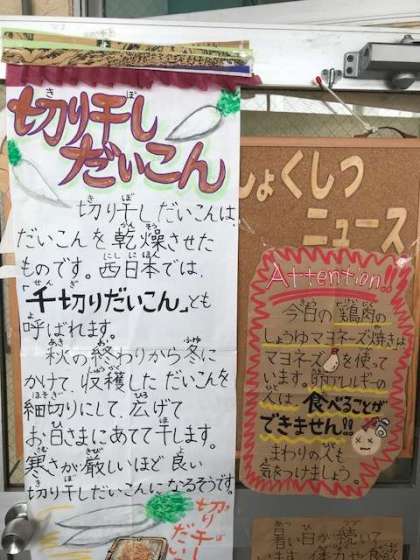 切り干し
だいこん
切り干しだいこんは、
だいこんを乾燥させた
ものです。西日本では、
「千切りだいこん」とも
呼ばれます。
秋の終わりから冬に
かけて、収穫しただいこんを
細切りにして、広げて
お日さまにあてて干します。
寒さが厳しいほど良い
切り干しだいこんになるそうです。
切り干し
だい
しょくしつ
ニュース
Attention!!
今日の鶏肉の
しょうゆマヨネーズ焼きは
マヨネーズを使って
います。卵アレルギーの
人は食べることが
できません!!
まわりの人も
気をつけましょう。
暑い日が続いて